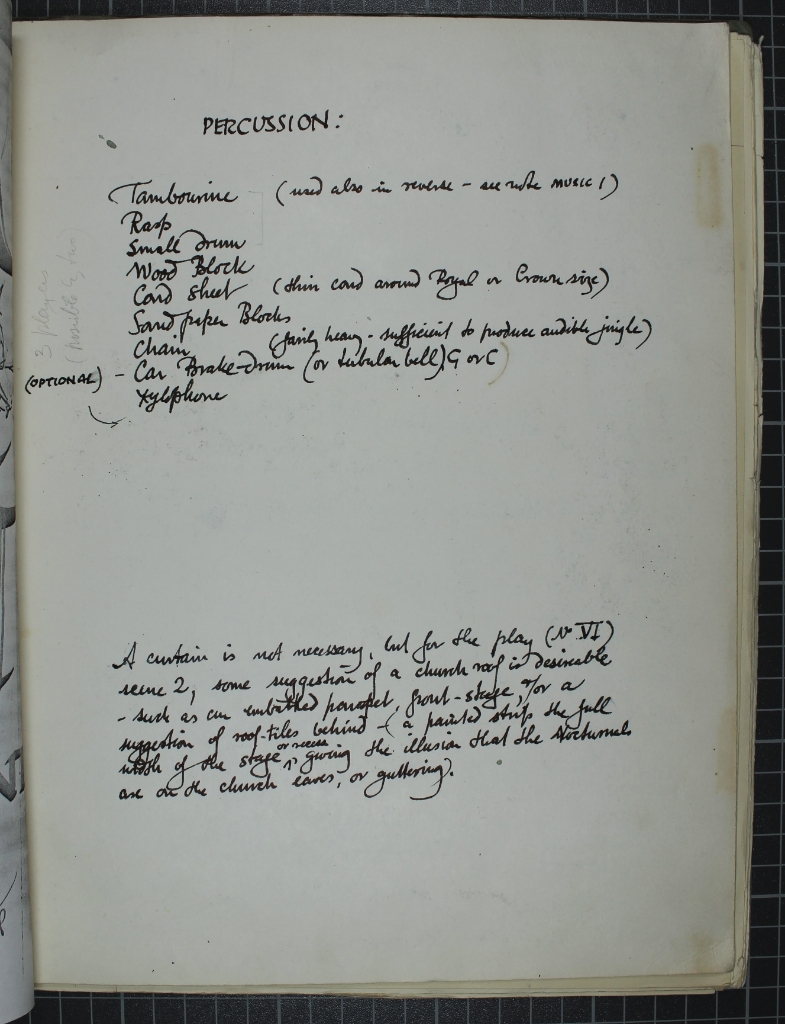 PERCUSSION:
Tambourine (used also in reverse - see note MUSIC 1)
Rasp
Small drum
Wood Block
Card sheet (thin card around Royal or Crown size)
Sand paper Blocks
Chain (fairly heavy - sufficient to produce audible jingle)
(OPTIONAL) - Car Brake-drum (or tubular bell) G or C
Xylophone
3 players
(possible by two)
A curtain is not necessary, but for the play (No VI)
scene 2, some suggestion of a church roof is desireable
- such as an embattled parapet, front-stage, &/or a
suggestion of roof-tiles behind - (a painted strip the full
width of the stage or recess giving the illusion that the Nocturnals
are on the church eaves, or guttering).